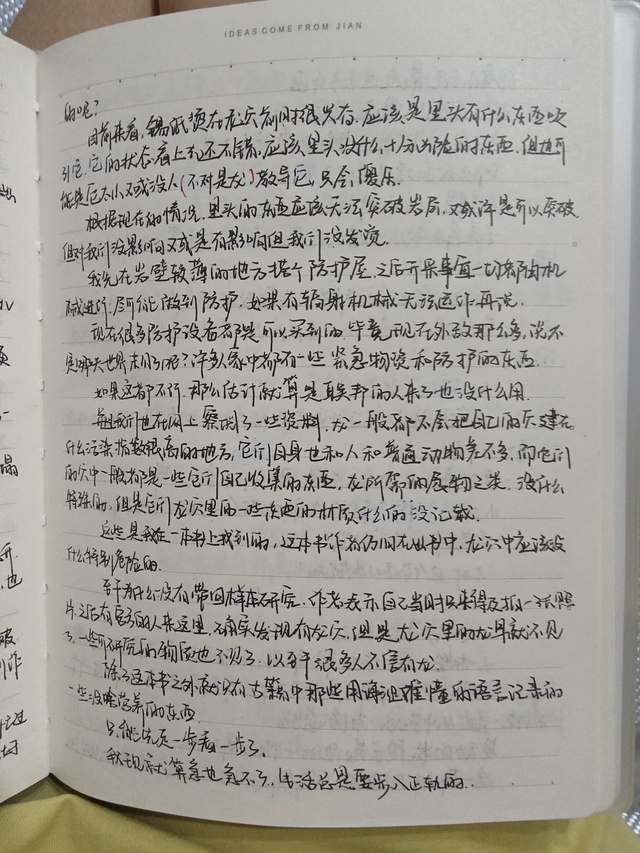 IDEAS COME FROM JIAN
的呢？
目前来看，锡纸烫在龙穴前时很兴奋，应该是里头有什么东西吸
引它，它的状态看上去还不错，应该里头没什么十分凶险的东西，但也可
能是它太小又或没人(不对是龙)教导它，只会傻乐。
根据现在的情况，里头的东西应该无法突破岩层，又或许是可以突破
但对我们没影响又或是有影响但我们没发觉。
我先在岩壁较薄的地方搭个防护屋，之后开采事宜一切都由机
械进行，尽可能做到防护，如果有辐射机械无法运作再说。
现在很多防护设备都是可以买到的，毕竟现在外敌那么多，说不
定哪天世界末日了呢？许多家中都有一些紧急物资和防护的东西。
如果这都不行，那么估计就算是联邦的人来了也没什么用。
并且我们也在网上察阅了一些资料，龙一般都不会把自己的穴建在
什么污染指数很高的地方，它们自身也和人和普通动物差不多，而它们
的穴中一般都是一些它们自己收集的东西，龙所需的食物之类，没什么
特殊的，但是它们龙穴里的一些东西的材质什么的没记载。
这些是我在一本书上找到的，这本书作者仍旧在世书中，龙穴中应该没
什么特别危险的。
至于为什么没有带回样本研究，作者表示自己当时只来得及拍一张照
片，之后有官方的人来这里，确实发现有龙穴，但是龙穴里的龙早就不见
了，一些可研究的物质也不见了，以至于很多人不信有龙。
除了这本书之外就只有古籍中那些用晦涩难懂的语言记录的
一些没啥营养的东西。
只能先走一步看一步了。
我现就算急也急不了，生活总是要步入正轨的。